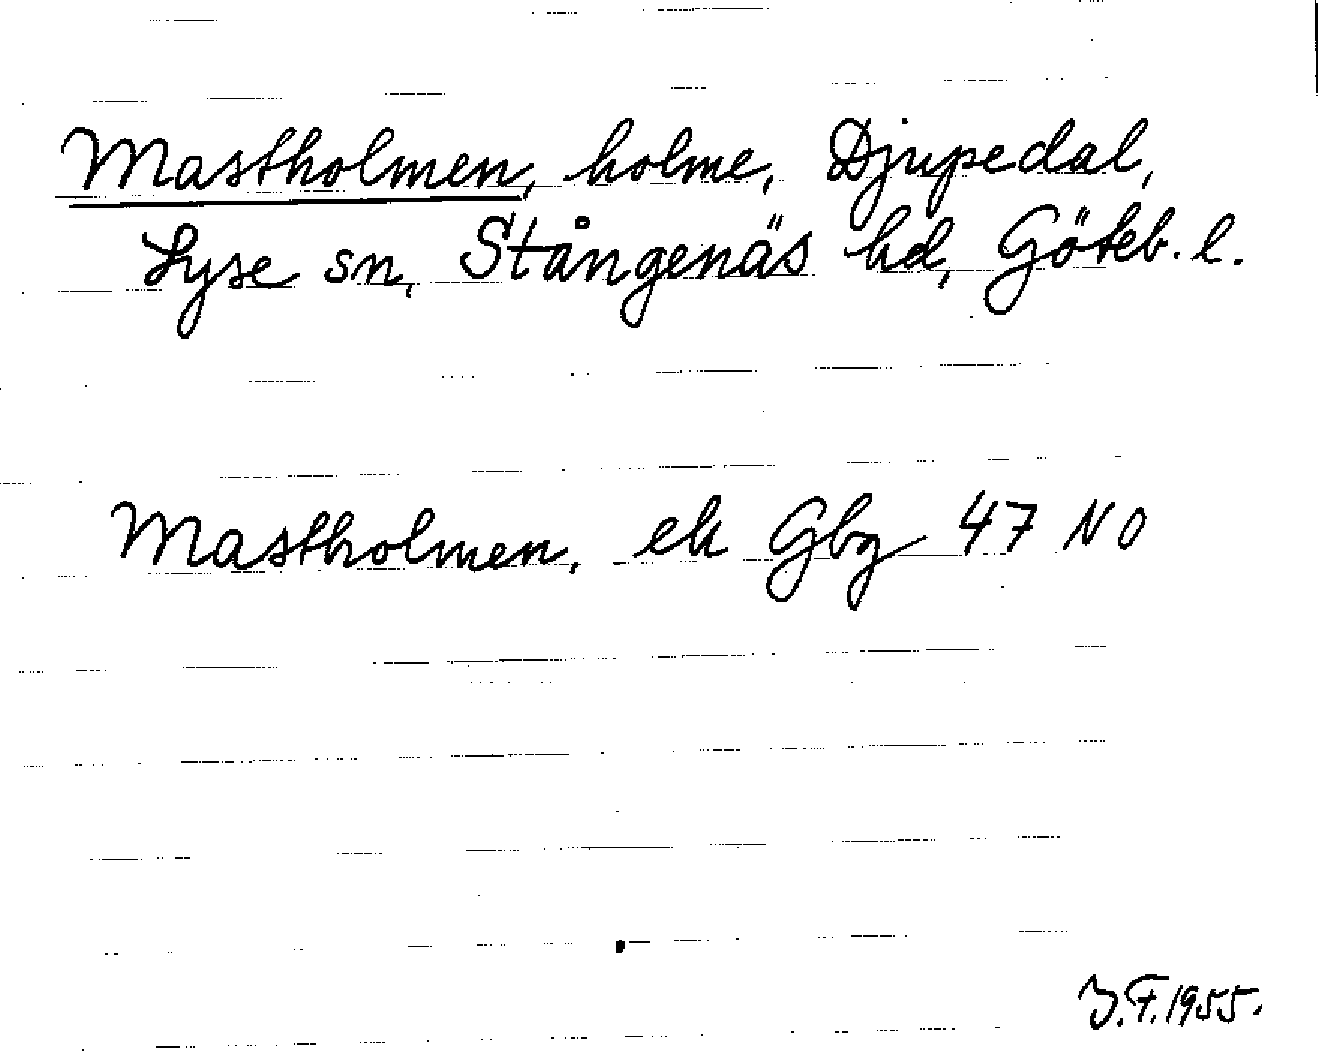 Mastholmen, holme, Djupedal,
Lyse sn, Stångenäs hd, Göteb. l.
Mastholmen, ek Gbg 47 NO
J.F. 1955.